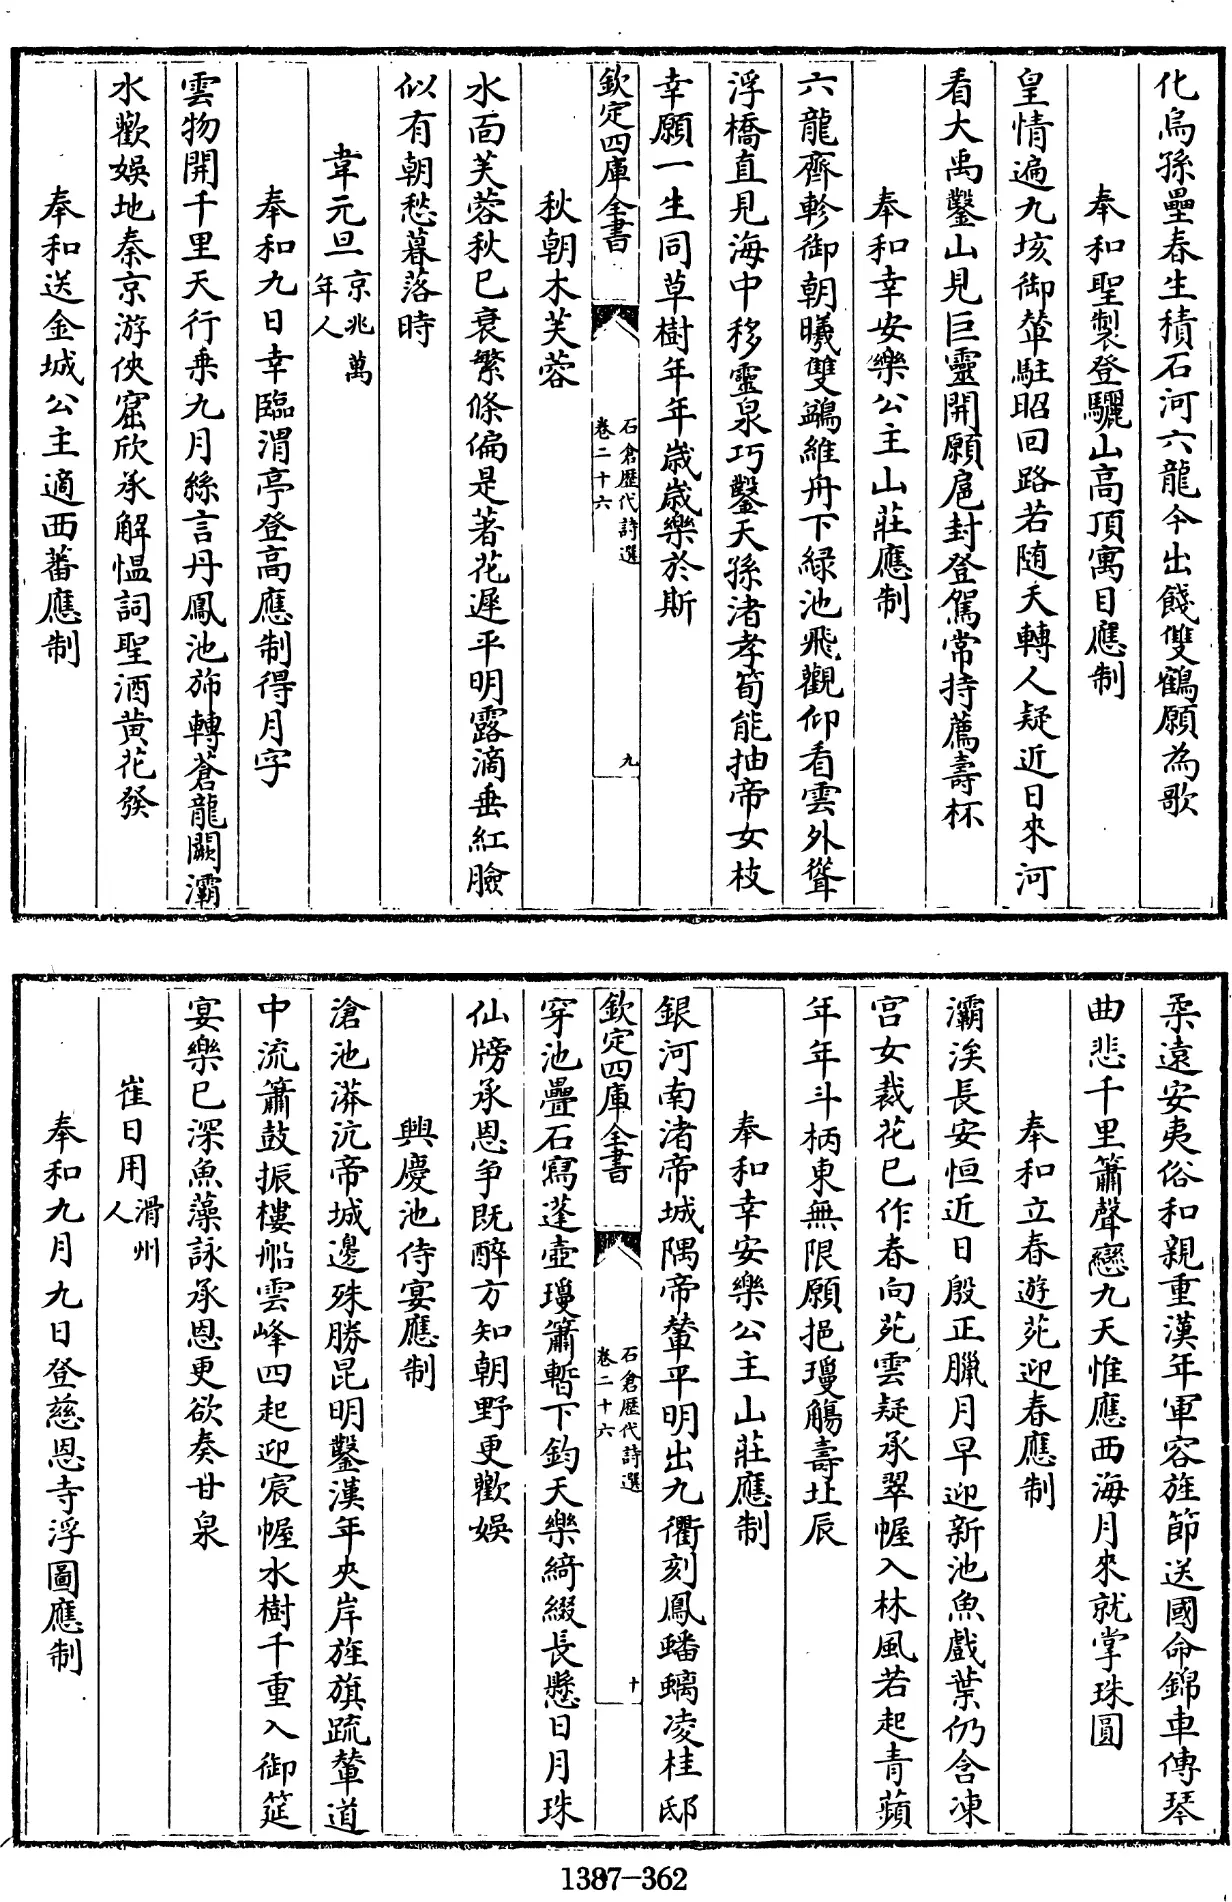 化烏孫壘春生積石河六龍今出餞雙鶴願為歌
奉和聖製登驪山高頂寓目應制
皇情遍九垓御輦駐昭回路若随天轉人疑近日來河
看大禹鑿山見巨靈開願扈封登駕常持薦壽杯
奉和幸安樂公主山莊應制
六龍齊軫御朝曦雙鷁維舟下緑池飛觀仰看雲外聳
浮橋直見海中移靈泉巧鑿天孫渚孝筍能抽帝女枝
幸願一生同草樹年年歳歳樂於斯
欽定四庫全書
石倉歷代詩選
卷二十六
九
秋朝木芙蓉
水面芙蓉秋已衰繁條偏是著花遲平明露滴垂紅臉
似有朝愁暮落時
韋元旦京兆萬
年人
奉和九日幸臨渭亭登高應制得月字
雲物開千里天行乗九月絲言丹鳳池斾轉蒼龍闕灞
水歡娯地秦京游俠窟欣承解愠詞聖酒黄花發
奉和送金城公主適西蕃應制
柔遠安夷俗和親重漢年軍容旌節送國命錦車傳琴
曲悲千里簫聲戀九天惟應西海月來就掌珠圓
奉和立春遊苑迎春應制
灞涘長安恒近日殷正臘月早迎新池魚戲葉仍含凍
宫女裁花已作春向苑雲疑承翠幄入林風若起青蘋
年年斗柄東無限願挹瓊觴壽北辰
奉和幸安樂公主山莊應制
銀河南渚帝城隅帝輦平明出九衢刻鳳蟠螭凌桂邸
欽定四庫全書
石倉歷代詩選
卷二十六
十
穿池疊石寫蓬壺瓊簫暫下鈞天樂綺綴長懸日月珠
仙牓承恩爭既醉方知朝野更歡娯
興慶池侍宴應制
滄池漭沆帝城邊殊勝昆明鑿漢年夾岸旌旗疏輦道
中流簫鼓振樓船雲峰四起迎宸幄水樹千重入御筵
宴樂已深魚藻詠承恩更欲奏甘泉
崔日用滑州
人
奉和九月九日登慈恩寺浮圖應制
1387—362